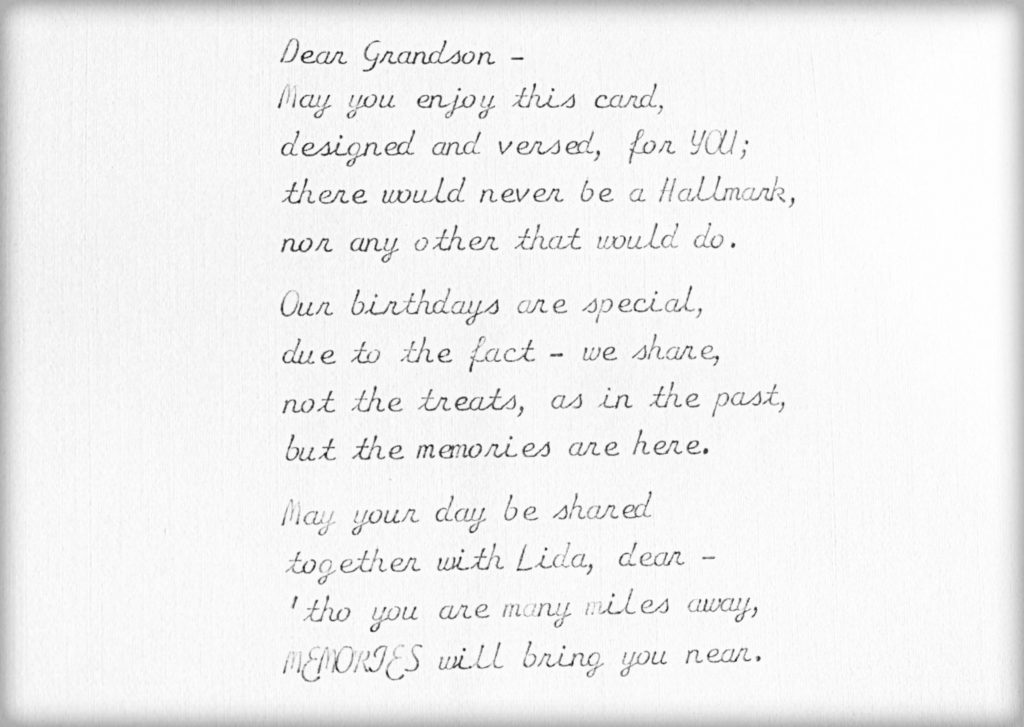 Dear Grandson -
May you enjoy this card,
designed and versed, for YOU;
there would never be a Hallmark,
nor any other that would do.
Our birthdays are special,
due to the fact - we share,
not the treats, as in the past,
but the memories are here.
May your day be shared
together with Lida, dear -
'tho you are many miles away,
MEMORIES will bring you near.